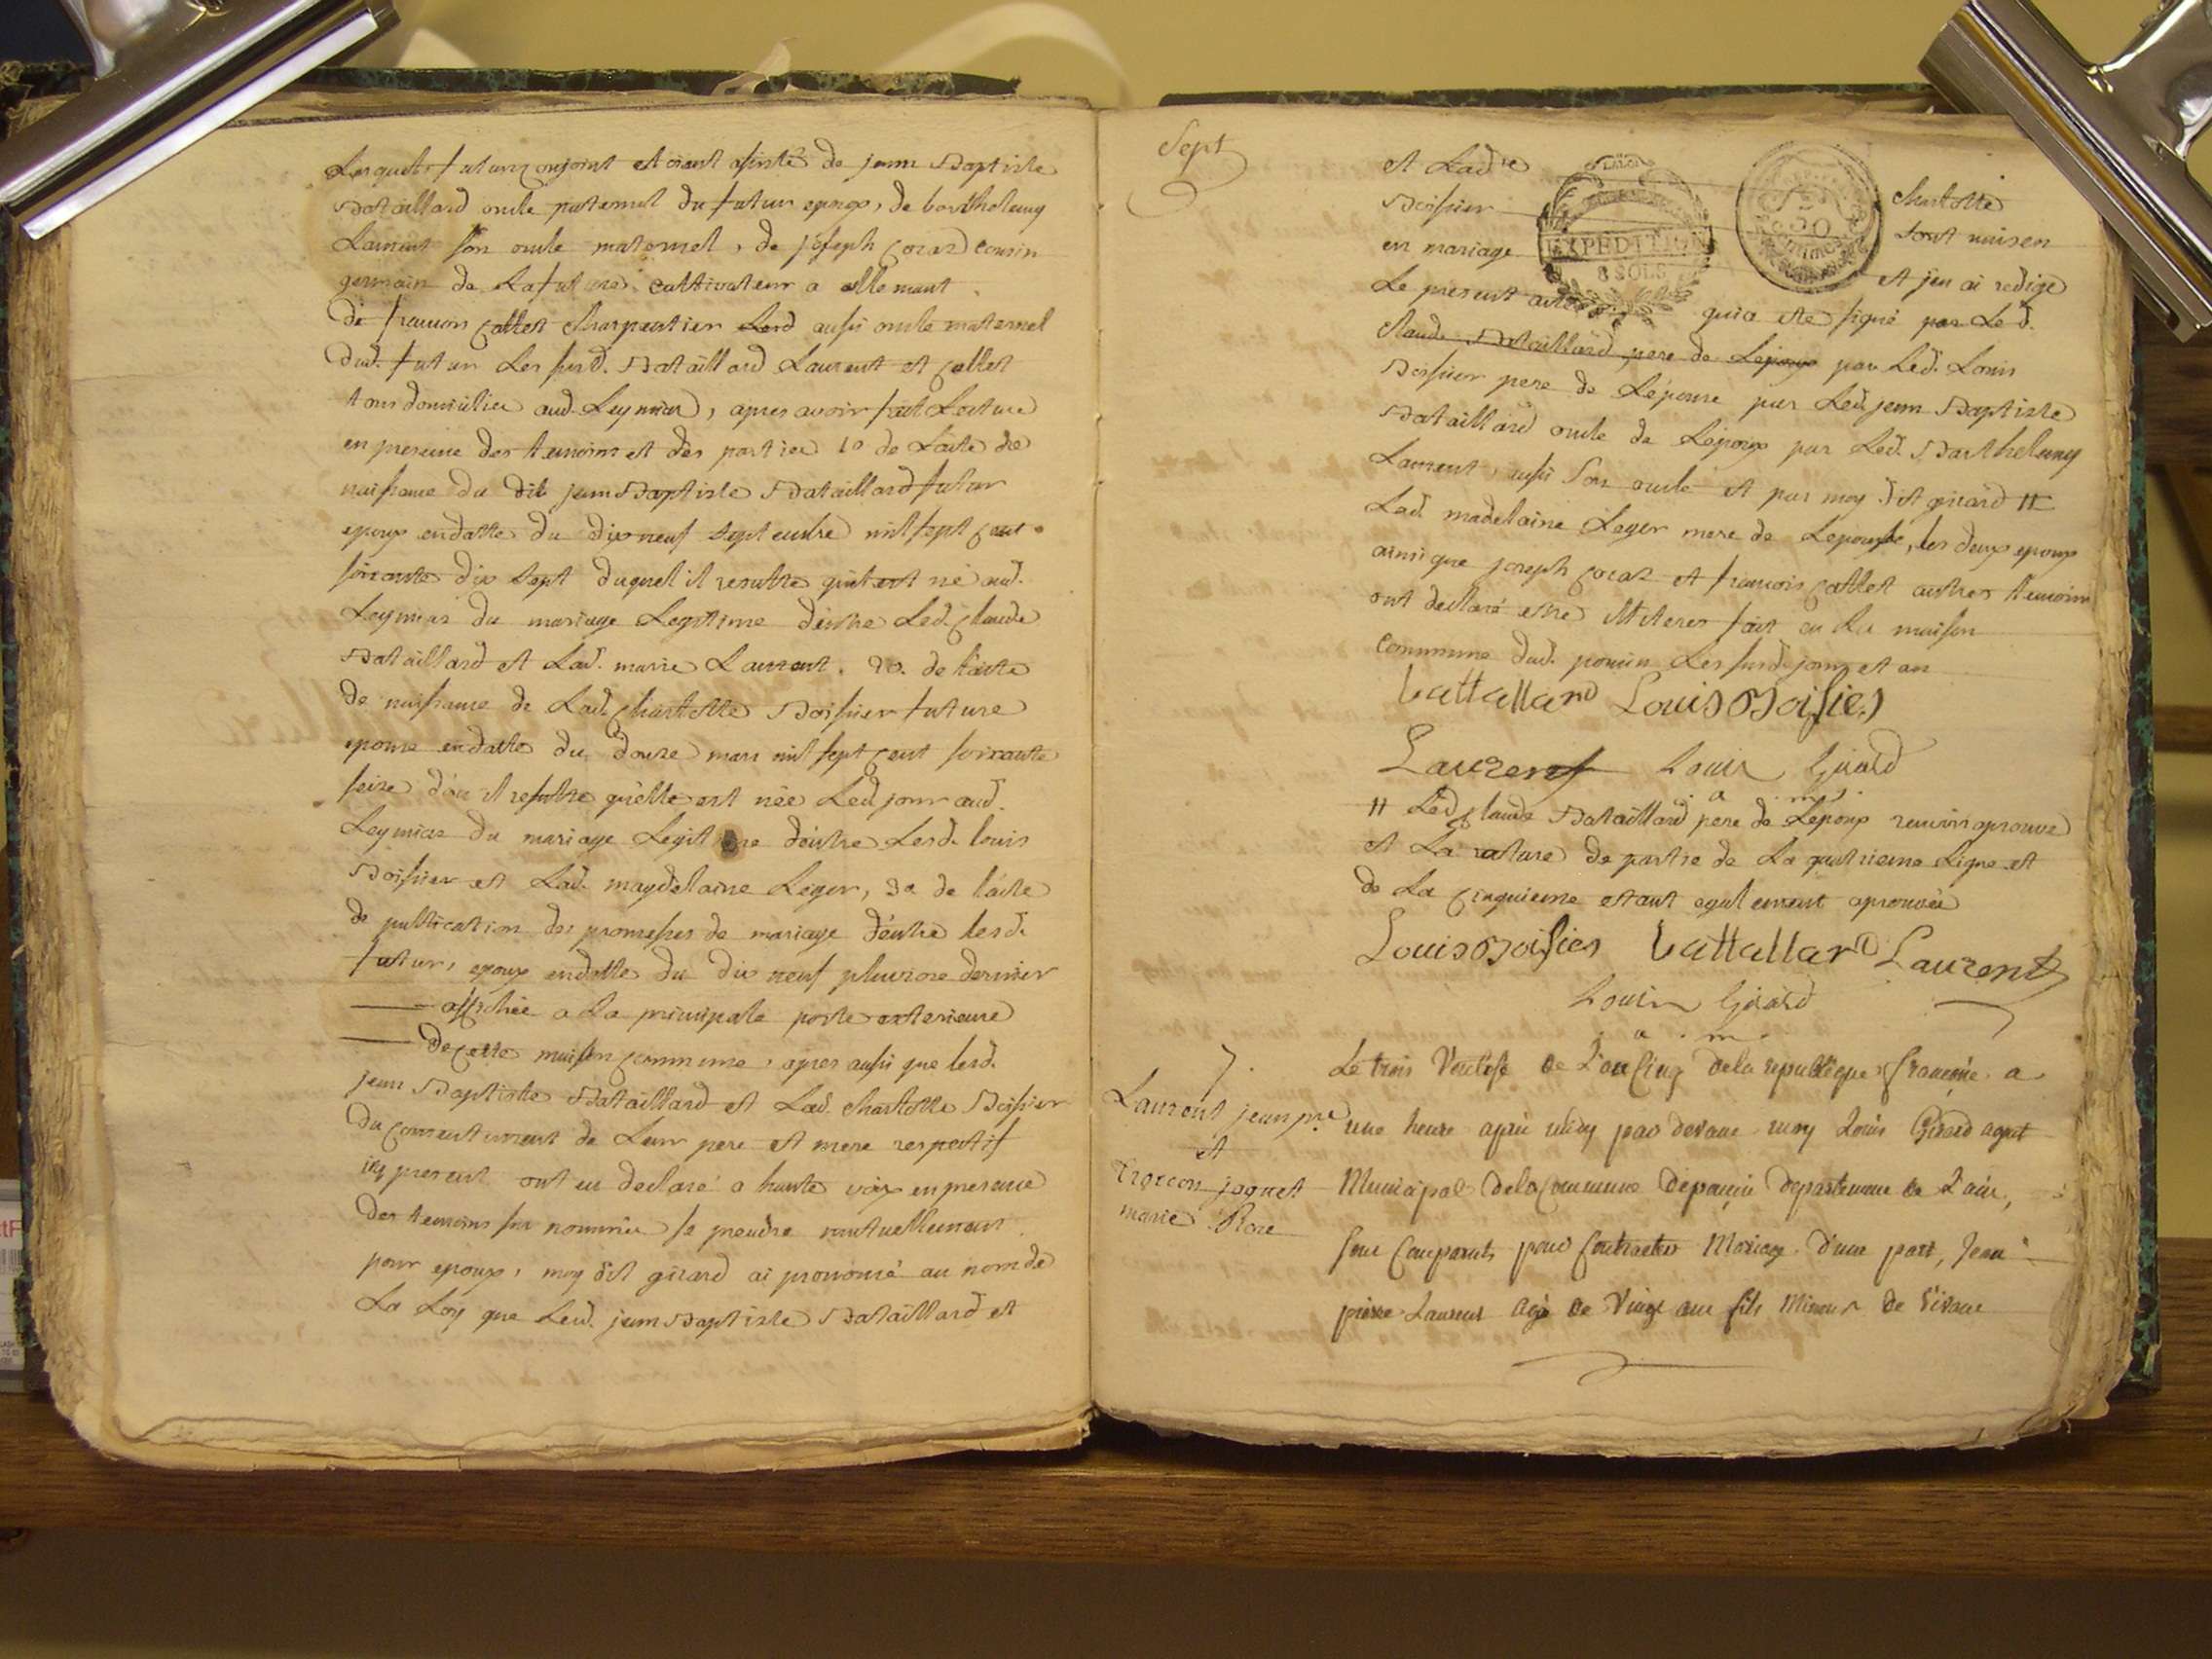 Lesquels futurs conjoint etoient asisté de jean Baptiste
Bataillard oncle paternel du futur epoux, de barthelemy
Laurent son oncle maternel, de joseph cousin
germain de La future cultivateur a
de francois Callet charpentier Lesd aussi oncle maternel
dud. futur Les susd. Bataillard Laurent et Callet
tous domicilies aud. Leymiat, apres avoir fait Lecture
en presence des temoins et des parties 1o de L'acte de
naissance du dit jean Baptiste Bataillard futur
epoux endatte du dix neuf septembre mil sept cent
soixante dix sept duquel il resulte qu'il est né aud.
Leymiat du mariage Legitime d'entre Led. Claude
Bataillard et Lad. marie Laurent. 2o. de l'acte
de naissance de Lad. Charlotte Boissier future
epouse endatte du douze mars mil sept cent soixante
seize d'ou il resulte qu'elle est née Led. jour aud.
Leymiat du mariage Legitime d'entre Lesd. louis
Boissier et Lad. magdelaine Leger, 3o de l'acte
de publication des promesses de mariage d'entre lesd.
futurs epoux endatte du dix neuf pluviose dernier
affichée a La principale porte exterieure
de cette maison commune, apres aussi que lesd.
jean Baptiste Bataillard et Lad. charlotte Boissier
du consentement de Leur pere et mere respectif
icy present ont eu declaré a haute voix en presence
des temoins sus nommés se prendre mutuellement
pour epoux, moy dit girard ai prononcé au nom de
La Loy que Led. jean Baptiste Bataillard et
Sept
et Lad.e Charlotte
Boissier sont unis en
en mariage et j'en ai redigé
LA LOI
EXPÉDITION
8 SOLS
50
Centimes
Le present acte qui a ete signé par Led.
Claude Bataillard pere de Lepoux par Led. Louis
Boissier pere de Lépouse par Led. jean Baptiste
Bataillard oncle de Lepoux par Led. Barthelemy
Laurent, aussi son oncle et par moy dit girard #
Lad. madelaine Leger mere de Lepouse, les deux epoux
ainsi que joseph et francois Callet autres temoins
ont declaré estre illiteres fait en La maison
commune dud. poncin Les susd. jour et an
battallard Louis Boisier
Laurent Louis Girard
a. m.
# Led. Claude Bataillard pere de Lepoux renvoi aprouvé
et La rature de partie de La quatrieme Ligne et
de La cinquieme etant egalement aprouvée
Louis Boisier battallard Laurent
Louis Girard
a. m.
7.
Laurent jean pre.
et
jaquet
marie Rose
Le trois Ventôse de L'an cinq de la republique francaise a
une heure après midy par devant moy Louis Girard agent
Municipal de la Commune de poncin departement de L'ain,
sont Comparuts pour Contracter Mariage. D'une part, Jean
pierre Laurent agé de Vingt ans fils Mineur de vivant